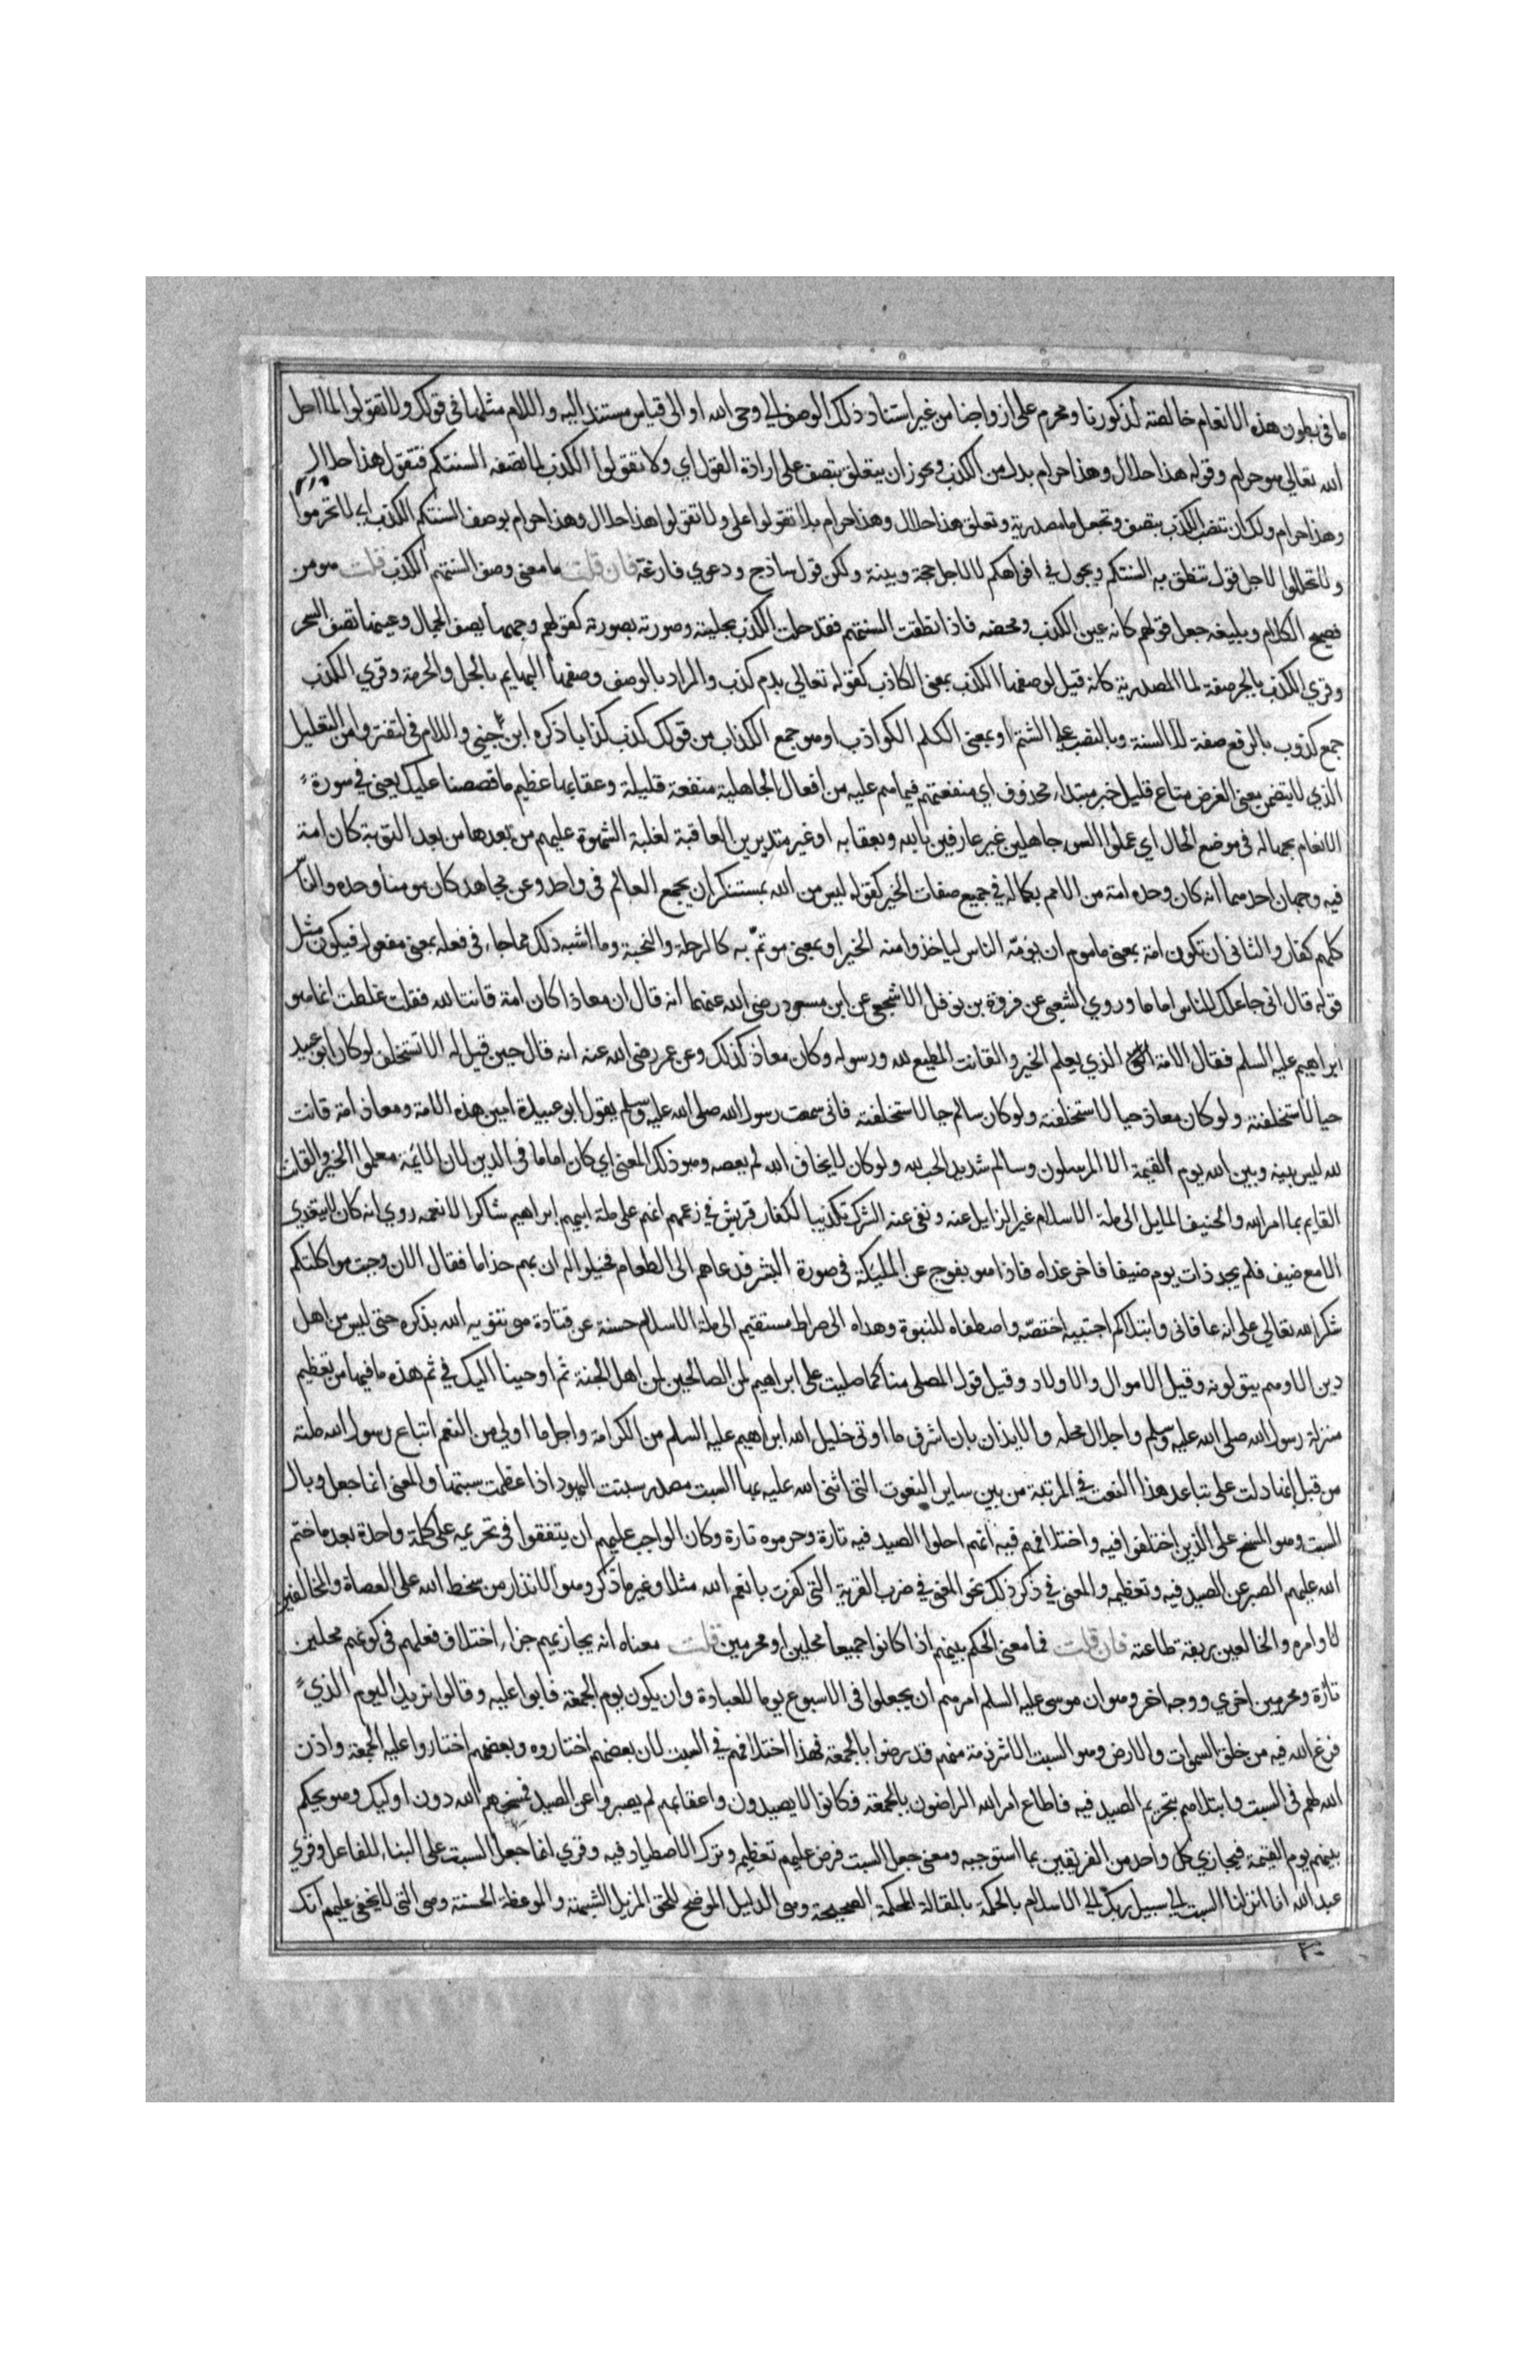 ما في بطون هذه الانعام خالصة لذكورنا ومحرم على ازواجنا من غير استناد ذلك الوصف الي وحى الله او الى قياس مستند اليه واللام مثلها في قولك ولا تقولوا لما احل
الله تعالي هو حرام وقوله هذا حلال وهذا حرام بدل من الكذب ويجوز ان يتعلق بتصف على ارادة القول اي ولا تقولوا الكذب لما تصفه السنتكم فتقول هذا حلال
وهذا حرام ولك ان تنصب الكذب بتصف وتجعل ما مصدرية وتعلق هذا حلال وهذا حرام بلا تقولوا على ولا تقولوا هذا حلال وهذا حرام بوصف السنتكم الكذب اي لا تحرموا
ولا تحللوا لاجل قول تنطق به السنتكم ويجول في افواهكم لا لاجل حجة وبينة ولكن قول ساذج ودعوي فارغة فان قلت ما معنى وصف السنتهم الكذب قلت هو من
فصيح الكلام وبليغه جعل قولهم كانه عين الكذب ومحضه فاذا نطقت السنتهم فقد حلت الكذب بحليته وصورته بصورته كقولهم وجهها يصف الجمال وعينها تصف السحر
وقري الكذب بالجر صفة لما المصدرية كانه قيل لوصفها الكذب بمعنى الكاذب كقوله تعالي بدم كذب والمراد بالوصف وصفها البهايم بالحل والحرمة وقري الكذب
جمع كذوب بالرفع صفة للالسنة وبالنصب على الشتم او بمعنى الكلم الكواذب او هو جمع الكذاب من قولك كذب كذابا ذكره ابن جني واللام في لتفتروا من التعليل
الذي لا يتضمن معنى الغرض متاع قليل خبر مبتدا محذوف اي منفعتهم فيما هم عليه من افعال الجاهلية منفعة قليلة وعقابها عظيم ما قصصنا عليك يعني في سورة
الانعام بجهالة في موضع الحال اي عملوا السوء جاهلين غير عارفين بالله وبعقابه او غير متدبرين العاقبة لغلبة الشهوة عليهم من بعدها من بعد التوبة كان امة
فيه وجهان احدهما انه كان وحده امة من الامم بكماله في جميع صفات الخير كقوله ليس من الله بمستنكر ان يجمع العالم في واحد وعن مجاهد كان مومنا وحده والناس
كلهم كفار والثاني ان تكون امة بمعنى ماموم ان يؤمه الناس لياخذوا منه الخير او بمعنى موتم به كالرحلة والنخبة وما اشبه ذلك مما جاء في فعلة بمعنى مفعول فيكون مثل
قوله قال اني جاعلك للناس اماما وروي الشعبي عن فروة بن نوفل الاشجعي عن ابن مسعود رضي الله عنهما انه قال ان معاذا كان امة قانتا لله فقلت غلطت انما هو
ابراهيم عليه السلم فقال الامة الذي يعلم الخير والقانت المطيع لله ورسوله وكان معاذ كذلك وعن عمر رضي الله عنه انه قال حين قيل له الا تستخلف لو كان ابو عبيدة
حيا لاستخلفته ولو كان معاذ حيا لاستخلفته ولو كان سالم حيا لاستخلفته فاني سمعت رسول الله صلى الله عليه وسلم يقول ابو عبيدة امين هذه الامة ومعاذ امة قانت
لله ليس بينه وبين الله يوم القيمة الا المرسلون وسالم شديد الحب لله ولو كان لا يخاف الله لم يعصه وهو ذلك المعنى اي كان اماما في الدين لان الايمة معلموا الخير والقانت
القايم بما امر الله والحنيف المايل الى ملة الاسلام غير الزايل عنه ونفى عنه الشرك تكذيبا لكفار قريش في زعمهم انهم على ملة ابيهم ابراهيم شاكرا لانعمه روي انه كان لا يتغدي
الا مع ضيف فلم يجد ذات يوم ضيفا فاخر غداه فاذا هو بفوج عن المليكة في صورة البشر فدعاهم الى الطعام فخيلوا له ان بهم جذاما فقال الان وجبت مواكلتكم
شكرا لله تعالي على انه عافاني وابتلاكم اجتبيه اختصه واصطفاه للنبوة وهداه الى صراط مستقيم الى ملة الاسلام حسنة عن قتادة هي تنويه الله بذكره حتى ليس من اهل
دين الا وهم يتولونه وقيل الاموال والاولاد وقيل قول المصلى منا كما صليت على ابراهيم لمن الصالحين لمن اهل الجنة ثم اوحينا اليك في ثم هذه ما فيها من تعظيم
منزلة رسول الله صلى الله عليه وسلم واجلال محله والايذان بان اشرف ما اوتى خليل الله ابراهيم عليه السلم من الكرامة واجل ما اولي من النعم اتباع رسول الله ملته
من قبل انها دلت على تباعد هذا النعت في المرتبة من بين ساير النعوت التى اثنى الله عليه بها السبت مصدر سبتت اليهود اذا عظمت سبتها والمعنى انما جعل وبال
السبت وهو المسخ على الذين اختلفوا فيه واختلافهم فيه انهم احلوا الصيد فيه تارة وحرموه تارة وكان الواجب عليهم ان يتفقوا في تحريمه على كلمة واحدة بعد ما ختم
الله عليهم الصبر عن الصيد فيه وتعظيمه والمعنى في ذكر ذلك نحو المعنى في ضرب القرية التى كفرت بانعم الله مثلا وغير ما ذكر وهو الانذار من سخط الله على العصاة والمخالفين
لاوامره والخالعين ربقة طاعته فان قلت فما معنى الحكم بينهم اذا كانوا جميعا محلين او محرمين قلت معناه انه يجازيهم جزاء اختلاف فعلهم في كونهم محلين
تارة ومحرمين اخري ووجه اخر وهو ان موسى عليه السلم امرهم ان يجعلوا في الاسبوع يوما للعبادة وان يكون يوم الجمعة فابوا عليه وقالوا نريد اليوم الذي
فرغ الله فيه من خلق السموات والارض وهو السبت الا شرذمة منهم قد رضوا بالجمعة فهذا اختلافهم في السبت لان بعضهم اختاروه وبعضهم اختاروا عليه الجمعة واذن
الله لهم في السبت وابتلاهم بتحريم الصيد فيه فاطاع امر الله الراضون بالجمعة فكانوا لا يصيدون واعقابهم لم يصبروا عن الصيد فمسخهم الله دون اوليك وهو يحكم
بينهم يوم القيمة فيجازي كل واحد من الفريقين بما استوجبه ومعنى جعل السبت فرض عليهم تعظيمه وترك الاصطياد فيه وقري انما جعل السبت على البناء للفاعل وقري
عبد الله انا انزلنا السبت الي سبيل ربك الي الاسلام بالحكمة بالمقالة المحكمة الصحيحة وهي الدليل الموضح للحق المزيل للشبهة والموعظة الحسنة وهي التى لا يخفى عليهم انك